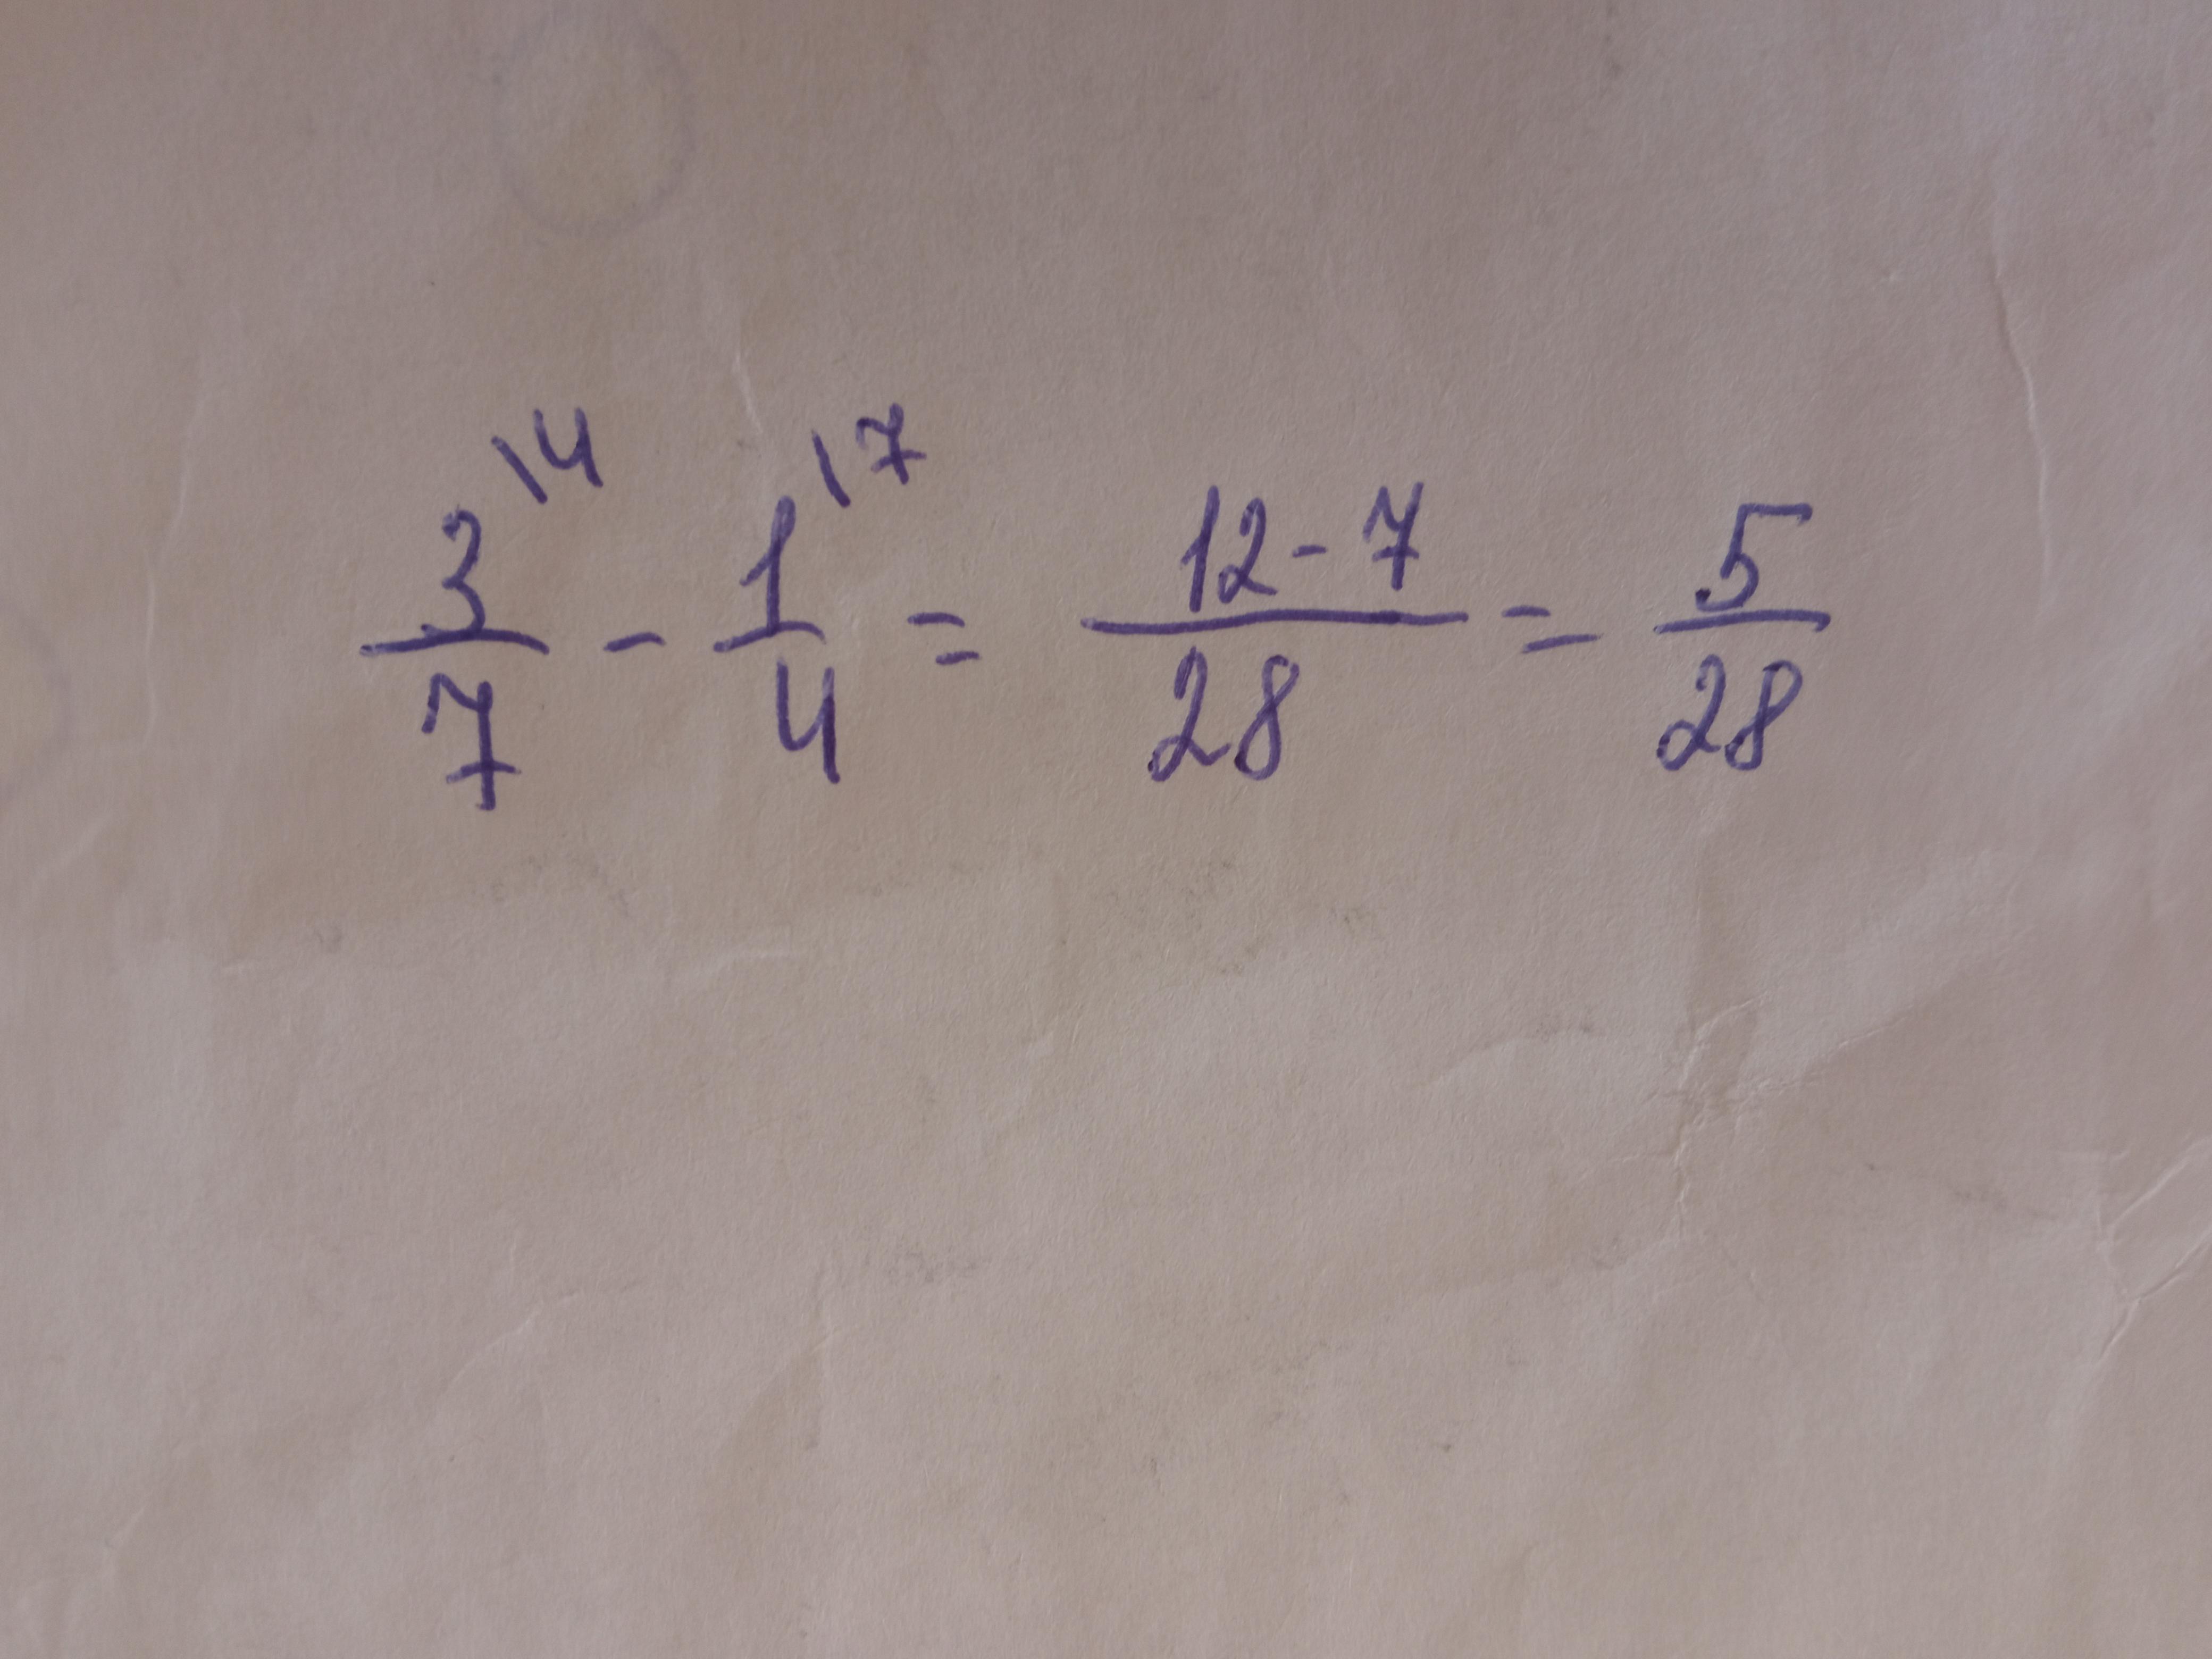 3/7 \4 - 1/4 \7 = 12-7/28 = 5/28